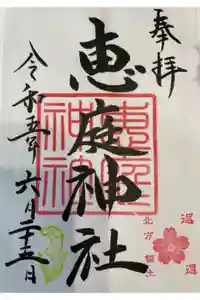 奉拝
恵庭神社
令和五年六月二十五日
恵庭
神社
北方領土
返還